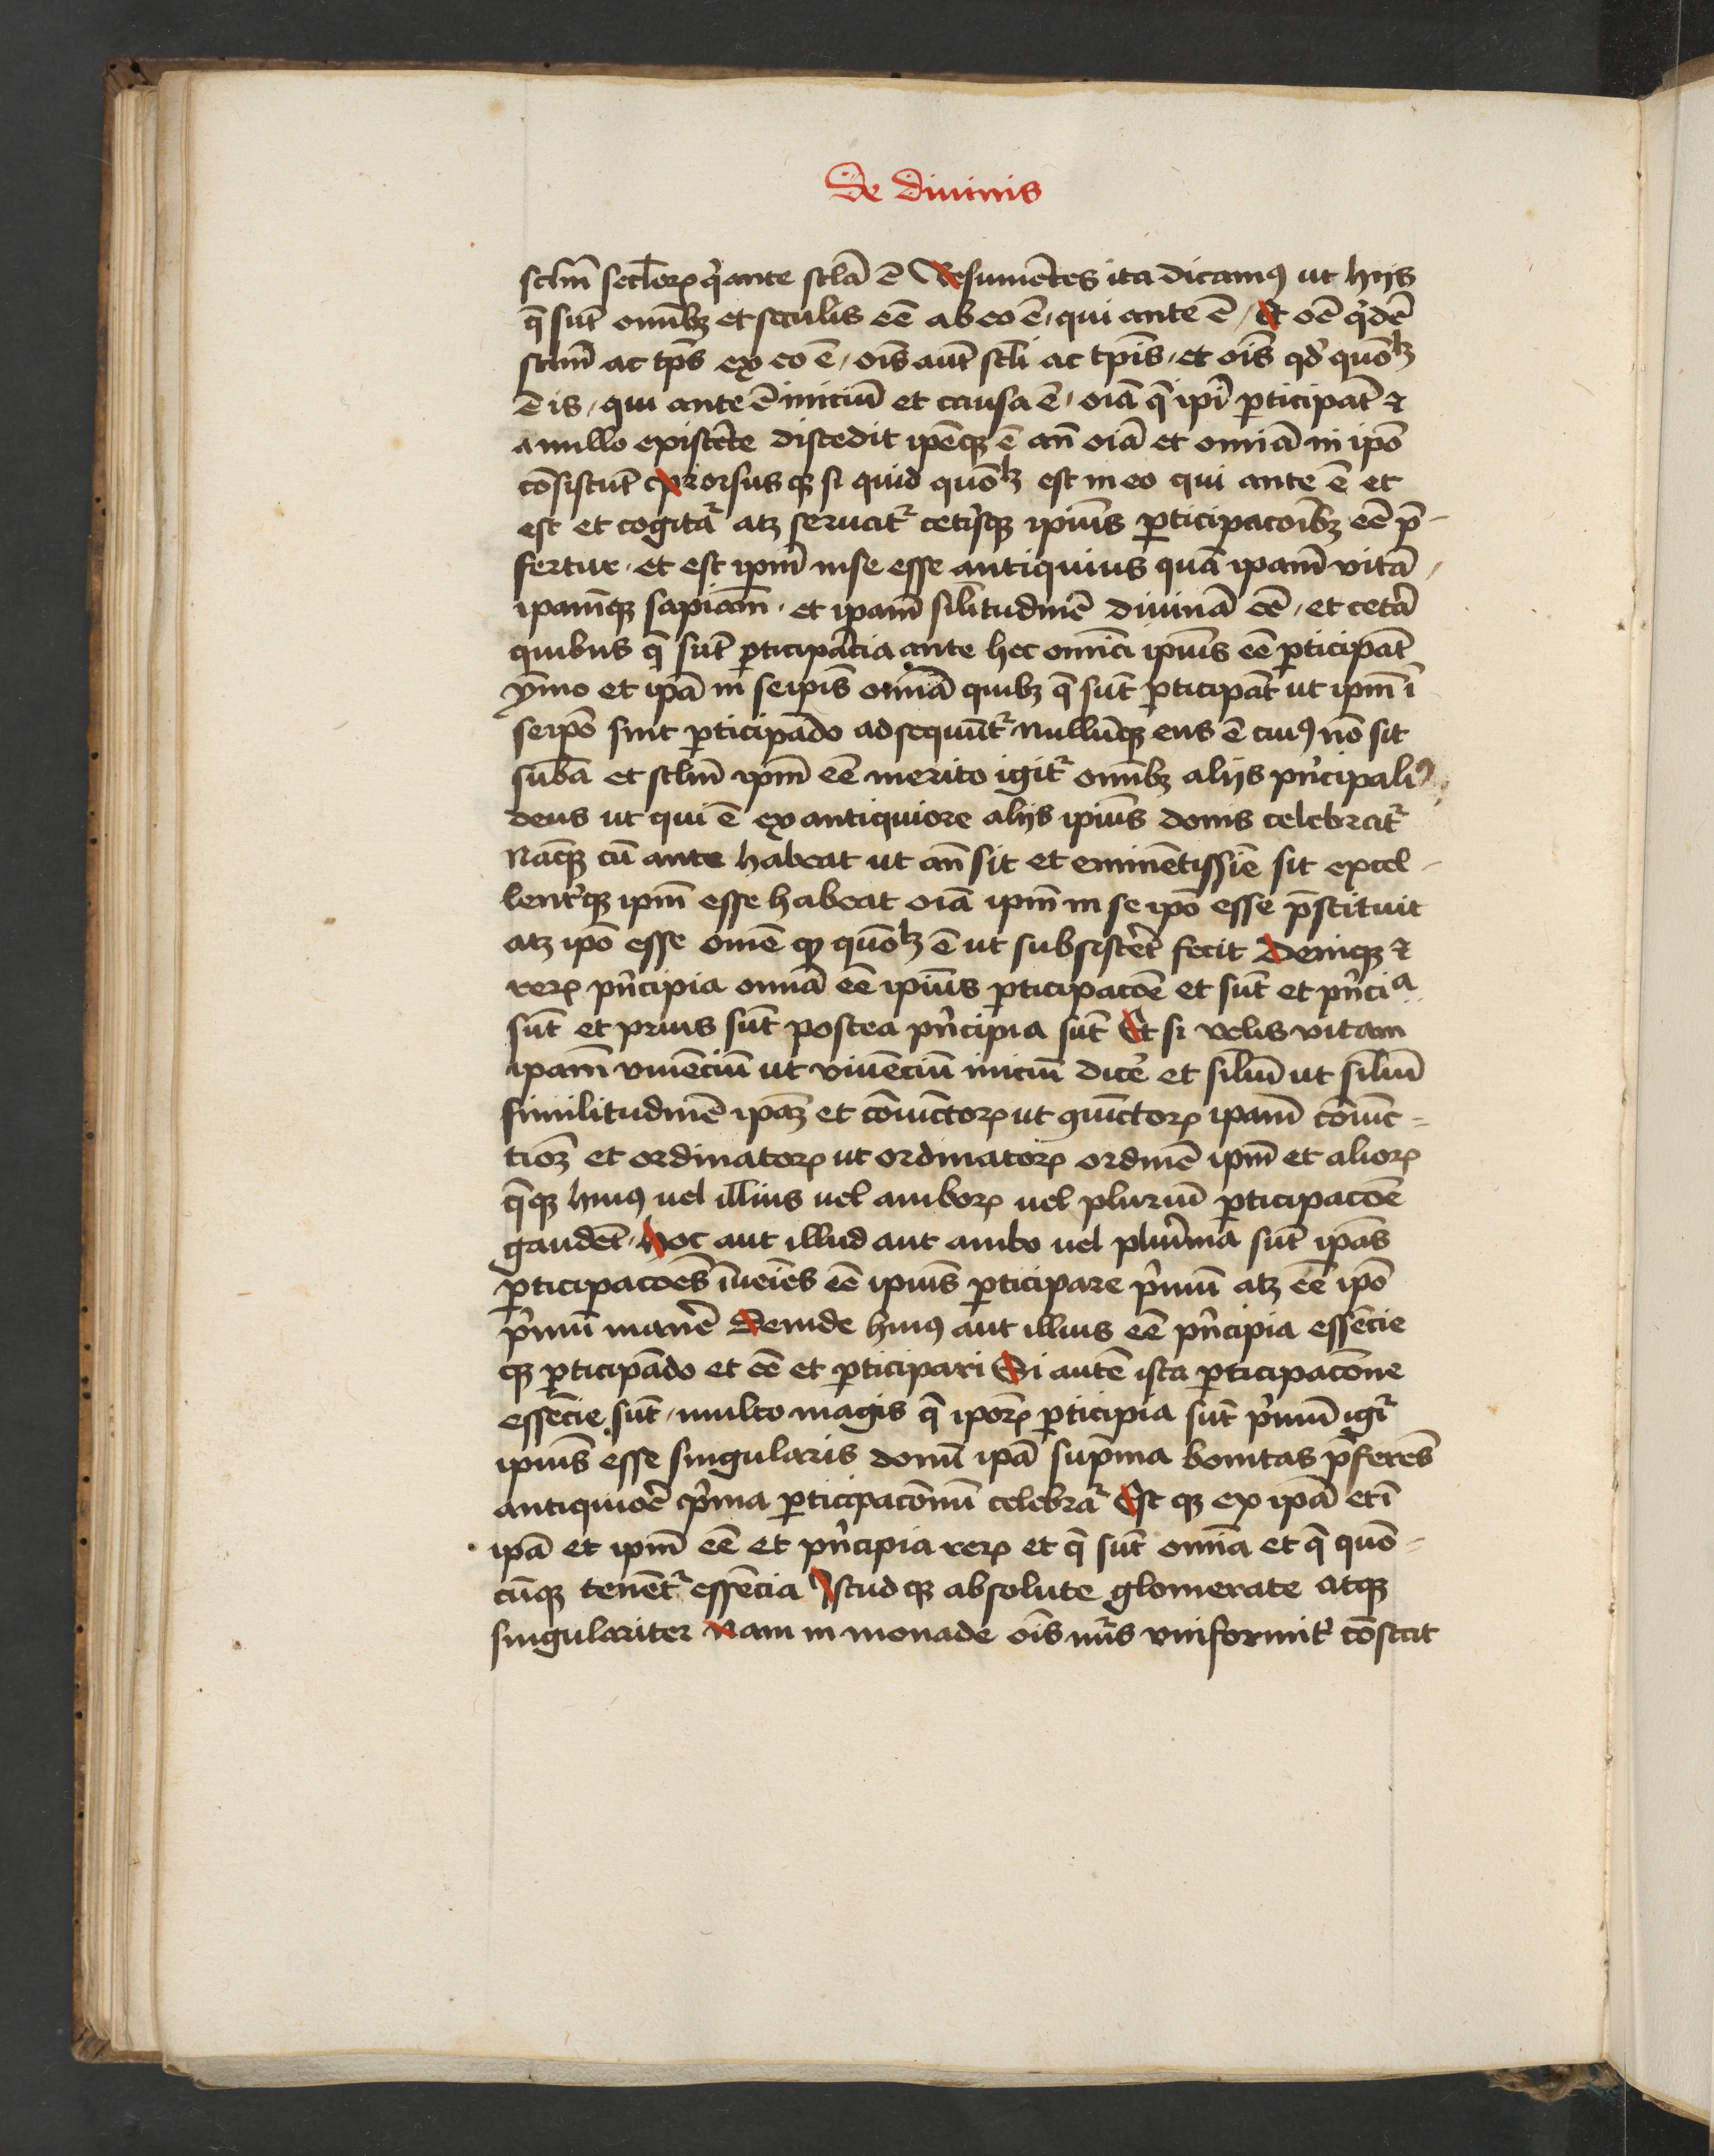 De diuinis
sclm̄ seclorꝝ q̇ ante sclā ē Resumētes ita dicamꝰ ut hijs
q̄ sūt om̄ibꝫ et seculis eē ab eo ē, qui ante ē, Et oē q̇dē
sclm̄ ac tp̄s ex eo ē, oīs aūt scl̄i ac tp̄is, et oīs qd̓ quōlꝫ
ē is, qui ante ē iniciū et causa ē, oīā q̄ ip̄i ꝑticipāt ⁊
a nullo existēte discedit ip̄eqꝫ ē an̄ oīā et omīā in ip̄o
cōsistūt prorsusqꝫ si quid quōlꝫ est in eo qui ante ē et
est et cogitať atꝫ seruať cetīsqꝫ ipiūs ꝑticipacōibꝫ eē p̄-
fertur, et est ip̄m in se esse antiquius quā ip̄am vitā,
ip̄amqꝫ sapiām, et ip̄am sil̄itudinē diuinā eē, et cetā
quibus q̄ sūt ꝑticipācia ante hec om̄ia ipiūs eē ꝑticipāt
ymo et ip̄a in seip̄is om̄ia quibꝫ q̄ sūt ꝑticipāt ut ip̄m ī
seip̄o sint ꝑticipādo adsequūť nullūqꝫ ens ē cuiꝰ nō sit
sūba et sclm̄ ip̄m eē merito igiť om̄ibꝫ alijs pn̄cipaliꝰ
deus ut qui ē ex antiquiore alijs ipiūs donis celebrať
Nāqꝫ cū ante habeat ut an̄ sit et eminētissīe sit excel-
lent̓qꝫ ip̄m esse habeat oīā ip̄m in se ip̄o esse p̄stituit
atꝫ ip̄o esse om̄e qd̓ quōlꝫ ē ut subsistēt fecit Deniqꝫ ⁊
rerꝝ pn̄cipia om̄ia eē ipiūs ꝑticipacōe et sūt et pn̄cia
sūt et prius sūt postea pn̄cipia sūt Et si velis vitam
ip̄am viuēciū ut viuēciū iniciū dicē et sil̄iū ut sil̄iū
similitudinē ip̄aꝫ et cōiūctorꝝ ut ꝯiūctorꝝ ip̄am cōiūc-
tioꝫ et ordinatorꝝ ut ordinatorꝝ ordinē ip̄m et aliorꝝ
q̄qꝫ huiꝰ uel illius uel amborꝝ uel pluriū ꝑticipacōe
gaudēt, Hoc aut illud aut ambo uel plurima sūt ip̄as
ꝑticipacōes īueīes eē ipiūs ꝑticipare p̓mū atꝫ eē ip̄o
p̓mū manē Deinde huiꝰ aut illius eē pn̄cipia essēcie
qꝫ ꝑticipādo et eē et ꝑticipari Si autē ista ꝑticipacōne
essēcie sūt, multo magis q̄ ip̄orꝝ ꝑticipia sūt p̓mū igiť
ipiūs esse singularis donū ip̄a sup̄ma bonitas p̄ferēs
antiquiorē p̓ma ꝑticipacōnū celebrať Est qꝫ ex ip̄a et ī
ip̄a et ip̄m eē et pn̄cipia rerꝝ et q̄ sūt om̄ia et q̄ quō-
cūqꝫ tenēť essēcia Istud qꝫ absolute glomerate atqꝫ
singulariter Nam in monade oīs nūs vniformiť cōstat